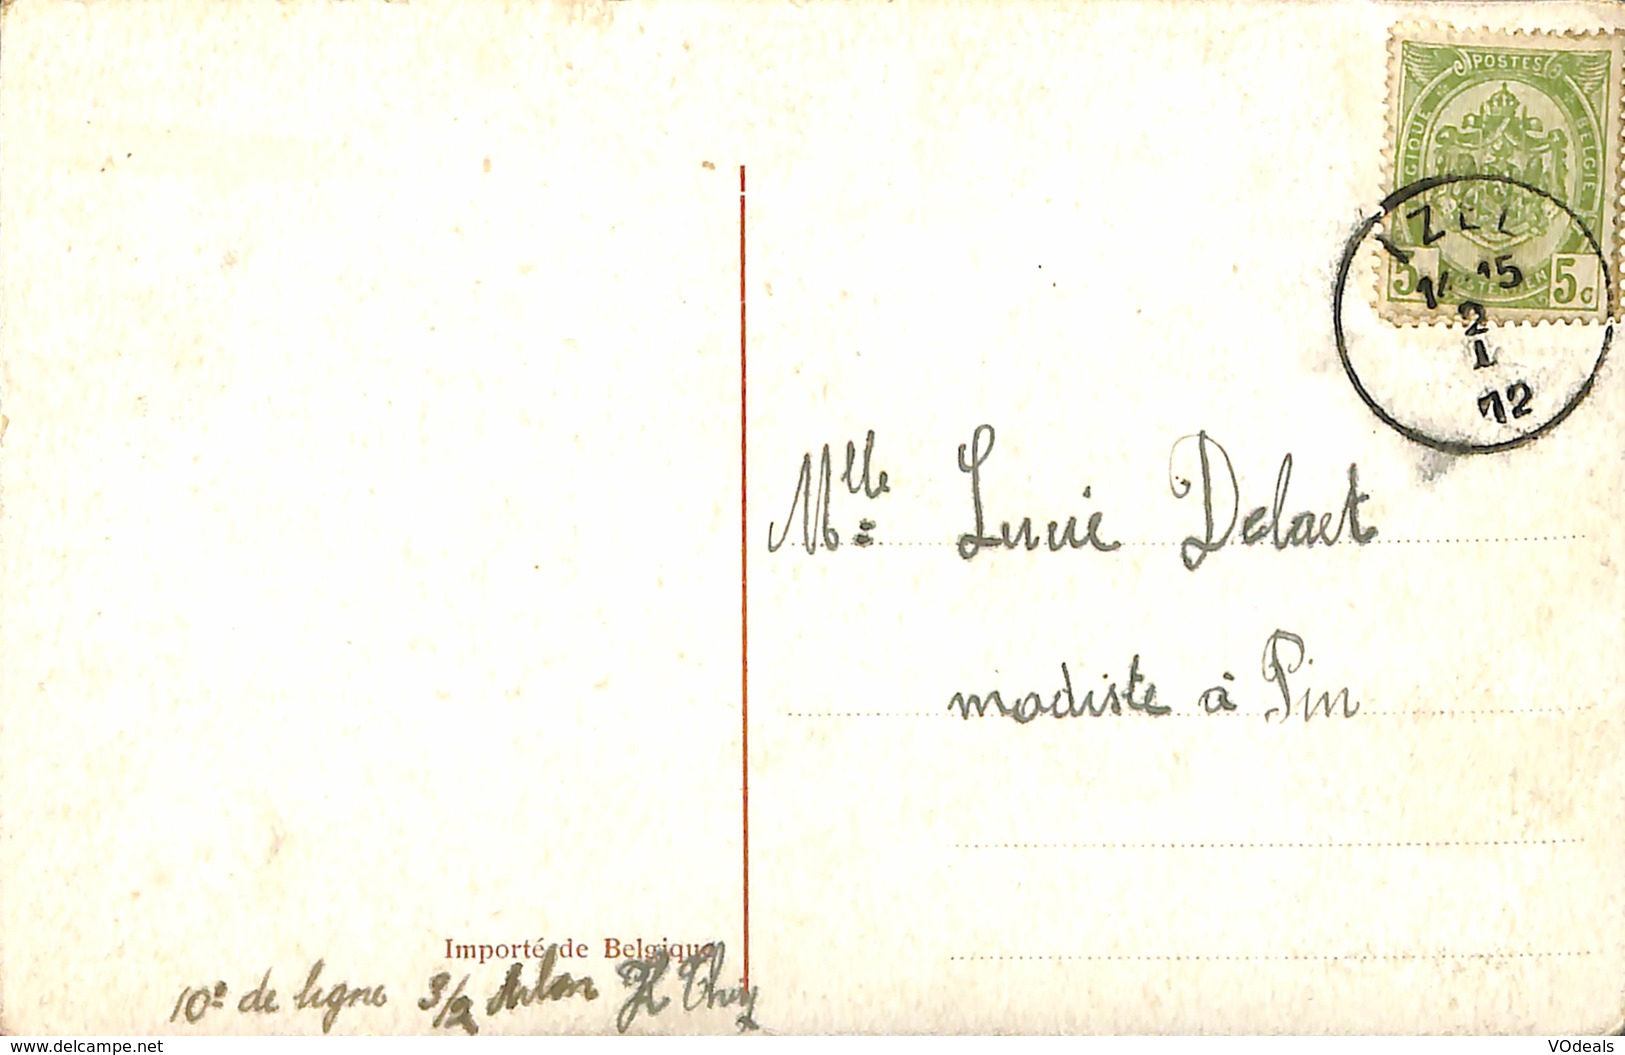 POSTES
BELGIQUE
BELGIE
5
5 c
IZEL
15
2
I
12
Mlle Lucie Delaet
modiste à Pin
Importé de Belgique
10e de ligne 3/2 Arlon
delcampe.net
VOdeals